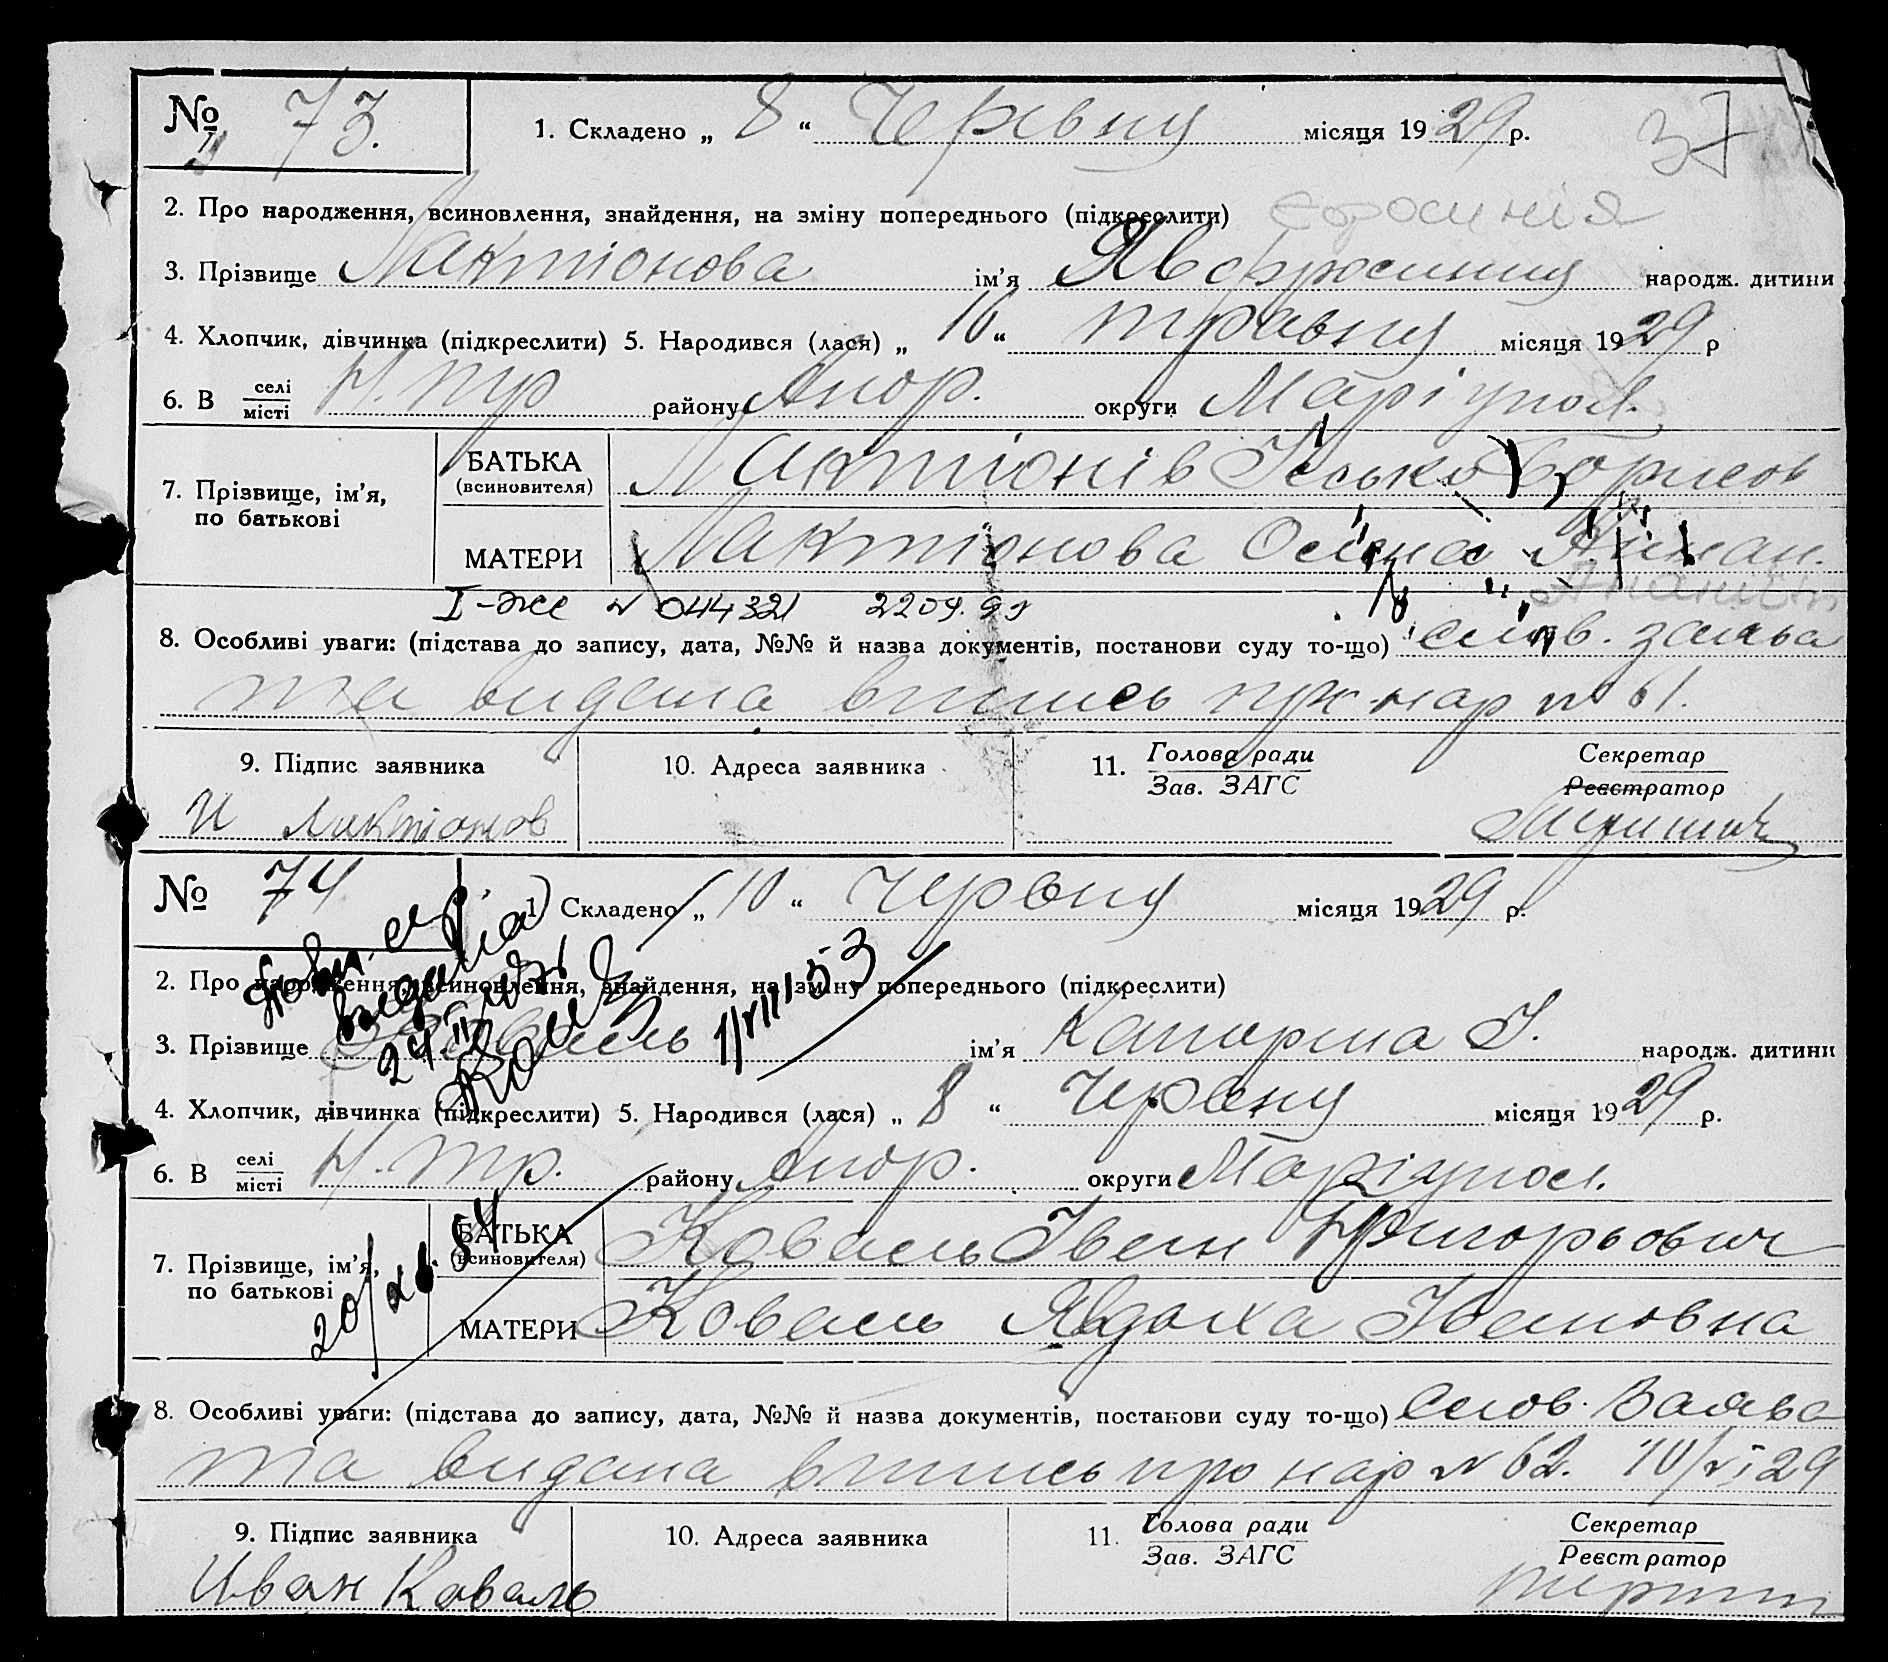 № 73. 1. Складено „ 8 “ Червня місяця 1929 р. 37
2. Про народження, всиновлення, знайдення, на зміну попереднього (підкреслити)
3. Прізвище Лактіонова ім’я народж. дитини
4. Хлопчик, дівчинка (підкреслити) 5. Народився (лася) „ 16 “ травня місяця 1929 р
6. В селі/місті району округи Маріупол.
7. Прізвище, ім’я, по батькові
БАТЬКА (всиновителя) Лактіонів Борисов
МАТЕРИ Лактіонова Олена
I-ЖС № 044321
8. Особливі уваги: (підстава до запису, дата, №№ й назва документів, постанови суду то-що) слов. заява
та видана впись про нар № 61.
9. Підпис заявника 10. Адреса заявника 11. Голова ради/Зав. ЗАГС Секретар/Реєстратор
И Лактіонов
№ 74 1. Складено „ 10 “ червня місяця 1929 р.
2. Про народження, всиновлення, знайдення, на зміну попереднього (підкреслити)
3. Прізвище Коваль ім’я Катерина І. народж. дитини
4. Хлопчик, дівчинка (підкреслити) 5. Народився (лася) „ 8 “ червня місяця 1929 р.
6. В селі/місті Н. тр. району округи Маріупол.
7. Прізвище, ім’я, по батькові
БАТЬКА (всиновителя) Коваль Іван Григорьович
МАТЕРИ Коваль Явдоха Івановна
8. Особливі уваги: (підстава до запису, дата, №№ й назва документів, постанови суду то-що) слов. Заява
та видана впись про нар № 62. 10/VI 29
9. Підпис заявника 10. Адреса заявника 11. Голова ради/Зав. ЗАГС Секретар/Реєстратор
Иван Коваль